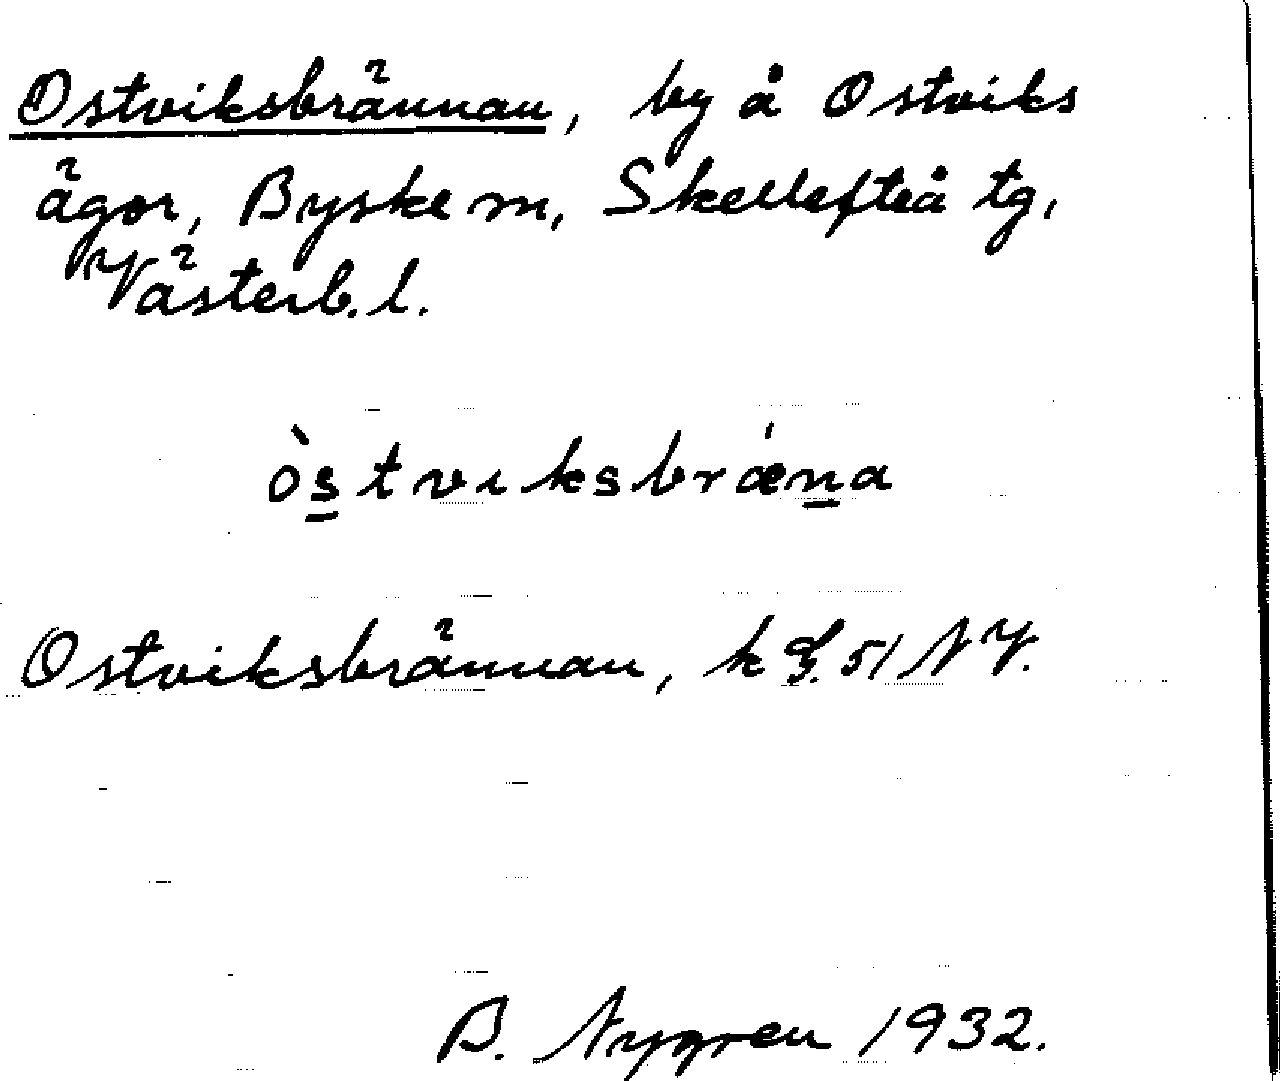 Ostviksbrännan, by å Ostviks
ägor, Byske sn, Skellefteå tg,
Västerb. l.
òs̲tviksbrǽn̲a
Ostviksbrännan, k 51 NV.
B. Nygren 1932.